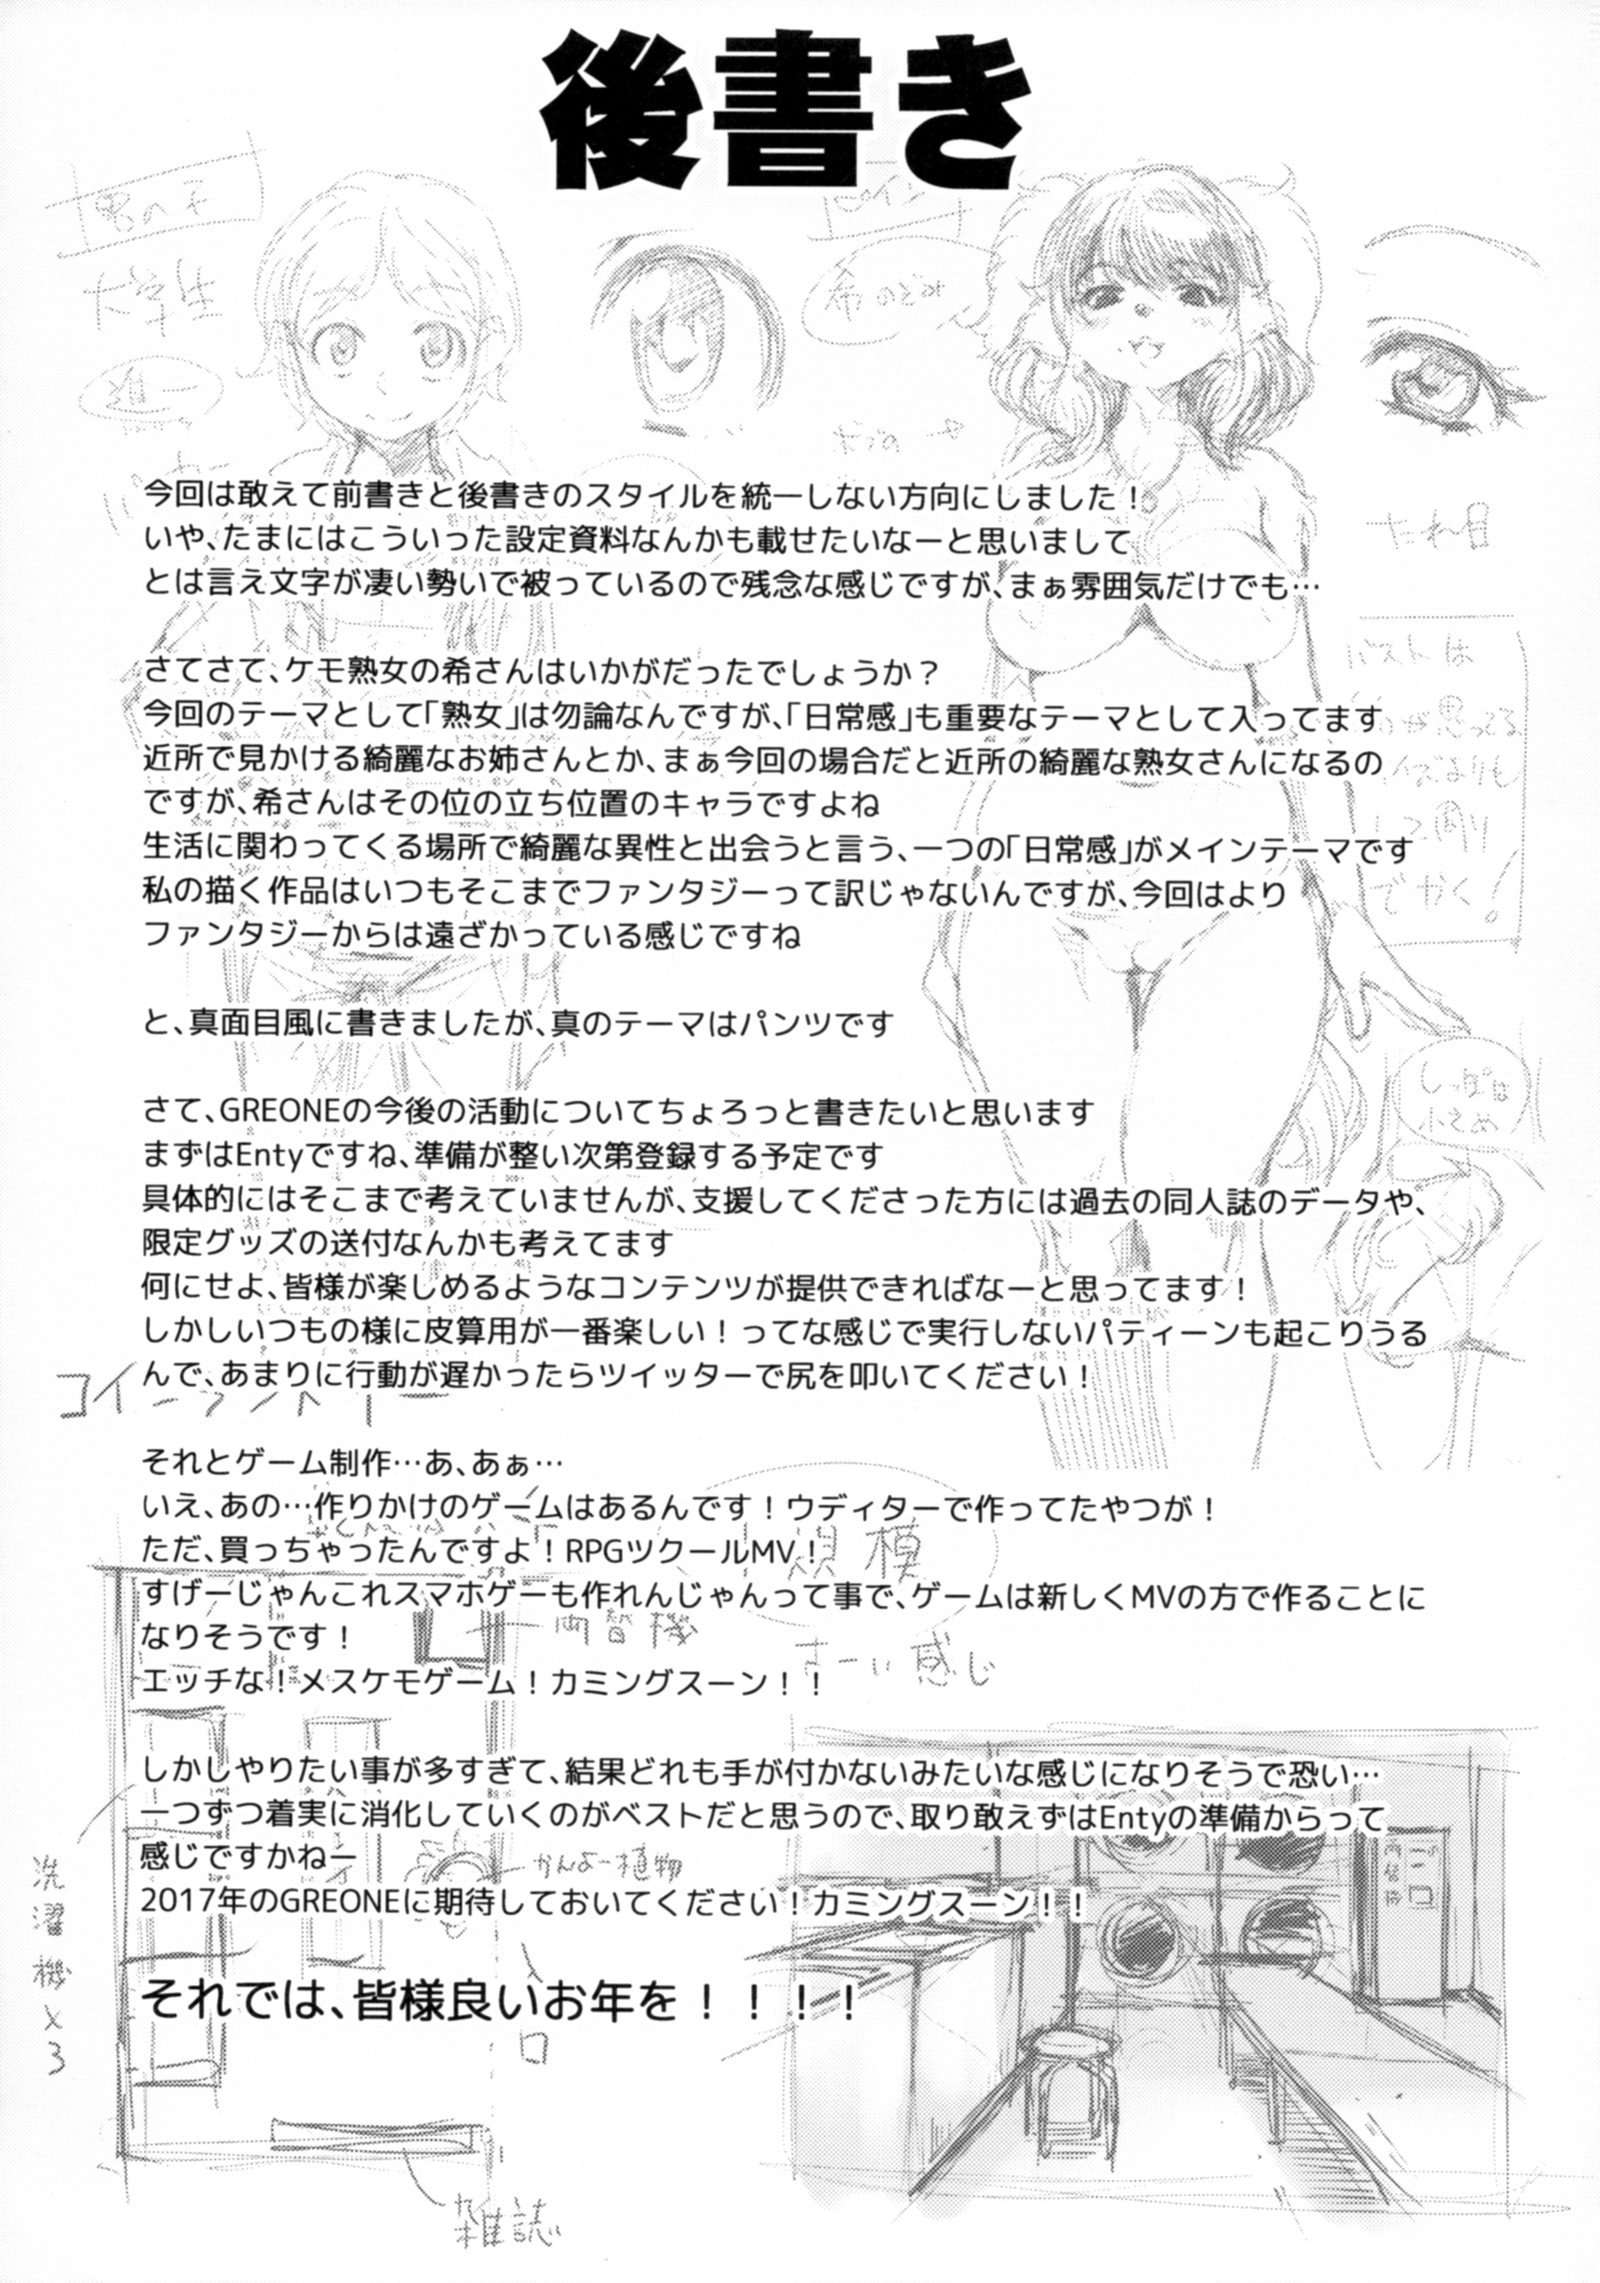 後書き
男の子
大学生
希のぞみ
たれ目
今回は敢えて前書きと後書きのスタイルを統一しない方向にしました！
いや、たまにはこういった設定資料なんかも載せたいなーと思いまして
とは言え文字が凄い勢いで被っているので残念な感じですが、まぁ雰囲気だけでも…
さてさて、ケモ熟女の希さんはいかがだったでしょうか？
今回のテーマとして「熟女」は勿論なんですが、「日常感」も重要なテーマとして入ってます
近所で見かける綺麗なお姉さんとか、まぁ今回の場合だと近所の綺麗な熟女さんになるの
ですが、希さんはその位の立ち位置のキャラですよね
生活に関わってくる場所で綺麗な異性と出会うと言う、一つの「日常感」がメインテーマです
私の描く作品はいつもそこまでファンタジーって訳じゃないんですが、今回はより
ファンタジーからは遠ざかっている感じですね
バストは
でかく！
と、真面目風に書きましたが、真のテーマはパンツです
しっぽは
小さめ
さて、GREONEの今後の活動についてちょろっと書きたいと思います
まずはEntyですね、準備が整い次第登録する予定です
具体的にはそこまで考えていませんが、支援してくださった方には過去の同人誌のデータや、
限定グッズの送付なんかも考えてます
何にせよ、皆様が楽しめるようなコンテンツが提供できればなーと思ってます！
しかしいつもの様に皮算用が一番楽しい！ってな感じで実行しないパティーンも起こりうる
んで、あまりに行動が遅かったらツイッターで尻を叩いてください！
コインランドリー
それとゲーム制作…あ、あぁ…
いえ、あの…作りかけのゲームはあるんです！ウディターで作ってたやつが！
ただ、買っちゃったんですよ！RPGツクールMV！
すげーじゃんこれスマホゲーも作れんじゃんって事で、ゲームは新しくMVの方で作ることに
なりそうです！
エッチな！メスケモゲーム！カミングスーン！！
小規模
両替機
さーい感じ
しかしやりたい事が多すぎて、結果どれも手が付かないみたいな感じになりそうで恐い…
一つずつ着実に消化していくのがベストだと思うので、取り敢えずはEntyの準備からって
感じですかねー
2017年のGREONEに期待しておいてください！カミングスーン！！
かんよー植物
洗濯機×3
入口
それでは、皆様良いお年を！！！！
雑誌